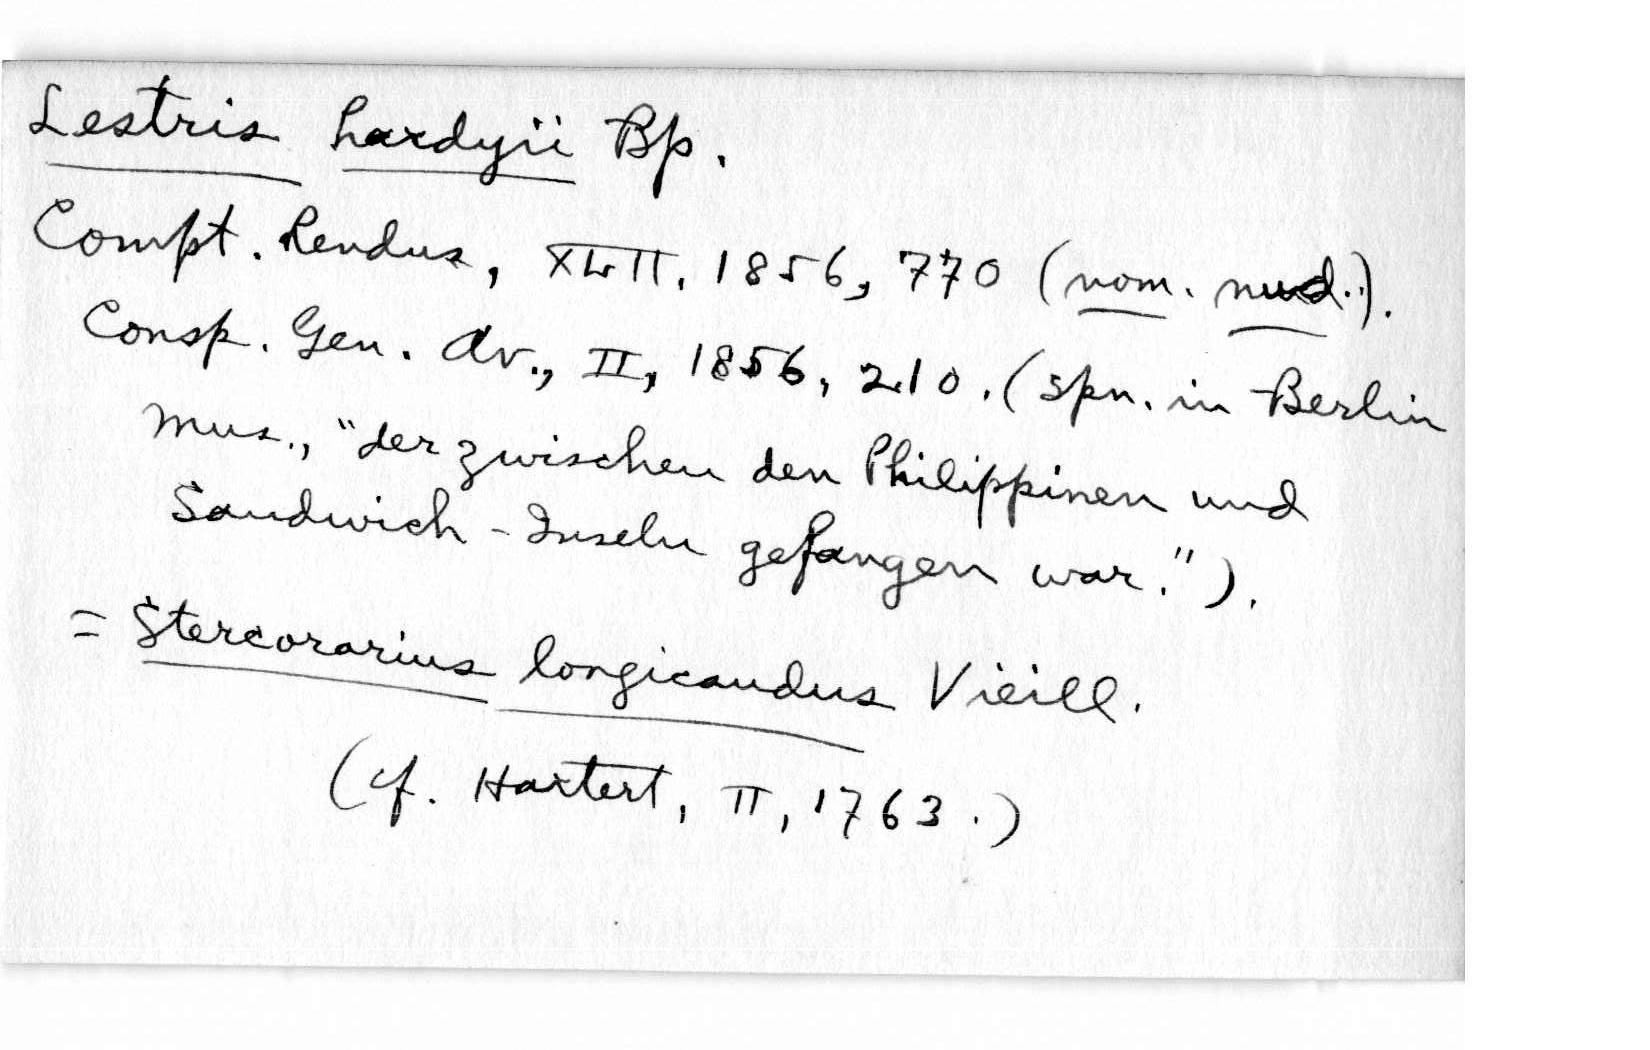 Lestris hardyii Bp.
Compt. Rendus, XLII, 1856, 770 (nom. nud.).
Consp. Gen. Av., II, 1856, 210. (spn. in Berlin
Mus., "der zwischen den Philippinen und
Sandwich-Inseln gefangen war.").
= Stercorarius longicaudus Vieill.
(cf. Hartert, II, 1763.)